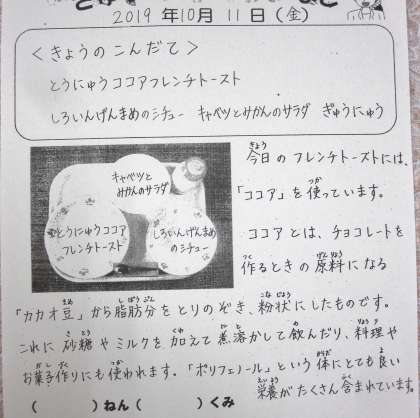 2019年10月11日(金)
<きょうのこんだて>
とうにゅうココアフレンチトースト
しろいんげんまめのシチュー キャベツとみかんのサラダ ぎゅうにゅう
キャベツと
みかんのサラダ
とうにゅうココア
フレンチトースト
しろいんげんまめ
のシチュー
今日のフレンチトーストには、
「ココア」を使っています。
ココアとは、チョコレートを
作るときの原料になる
「カカオ豆」から脂肪分をとりのぞき、粉状にしたものです。
これに砂糖やミルクを加えて煮溶かして飲んだり、料理や
お菓子作りにも使われます。「ポリフェノール」という体にとても良い
栄養がたくさん含まれています。
( )ねん( )くみ